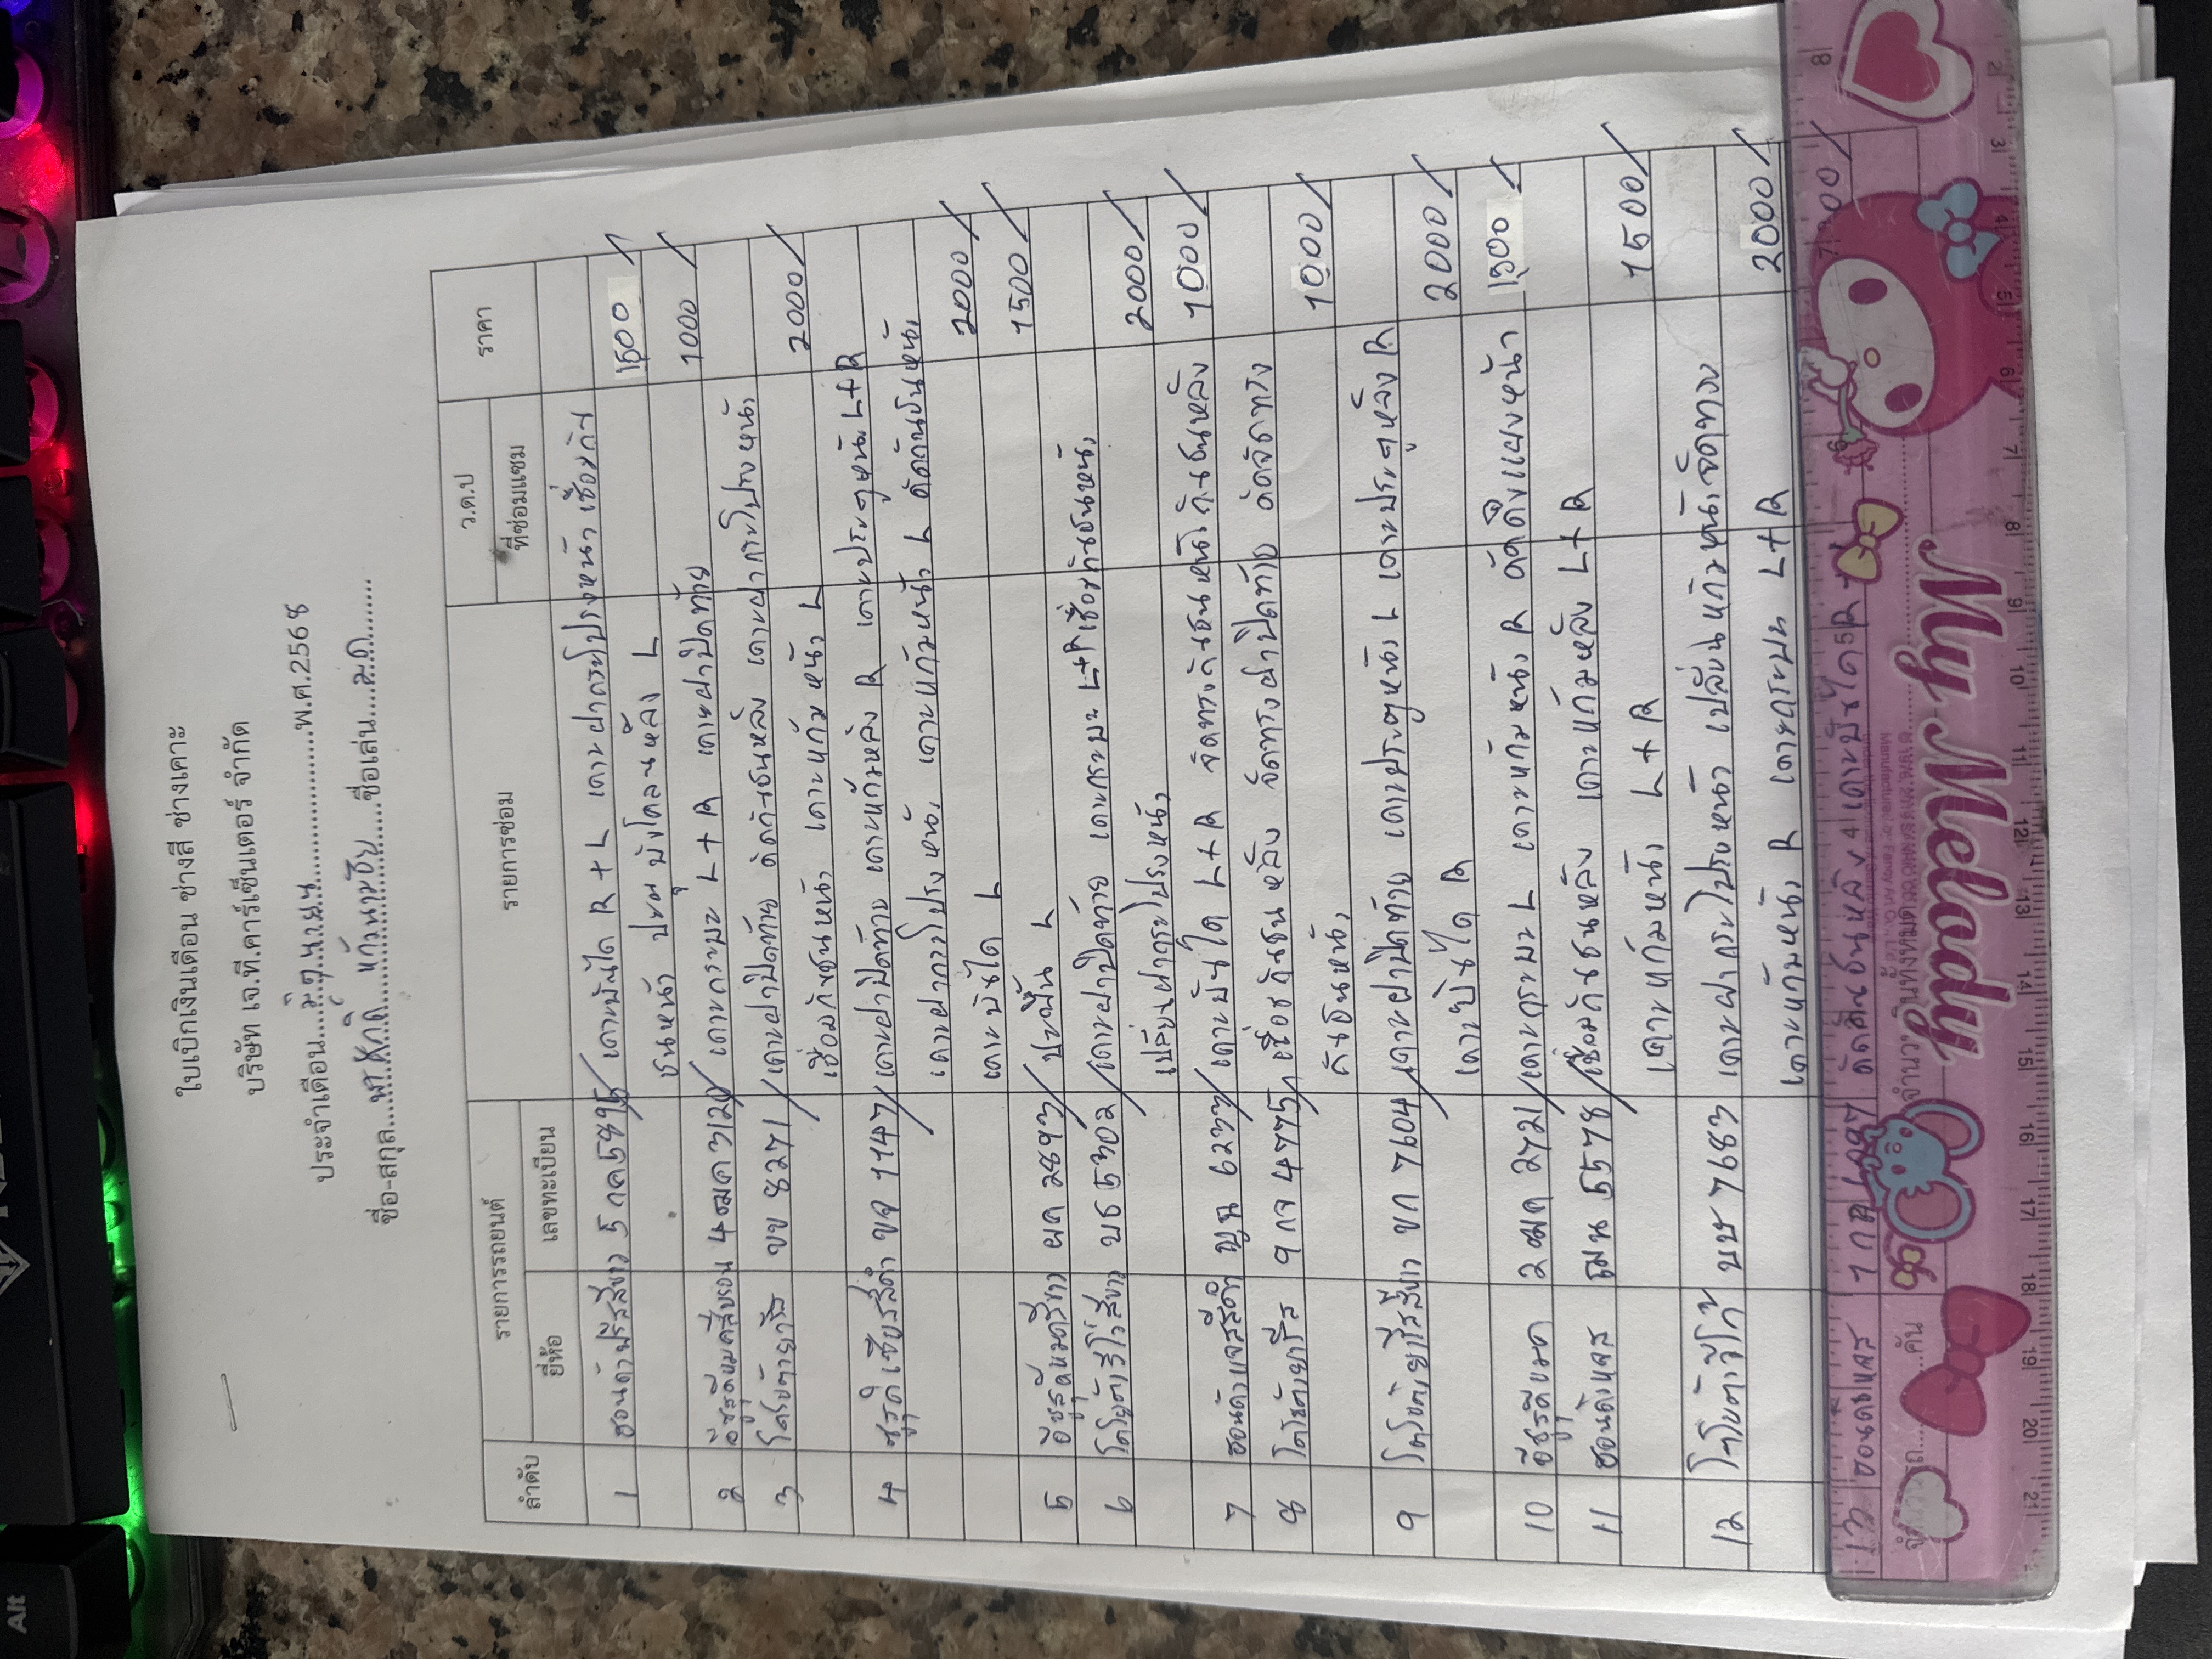 ใบเบิกเงินเดือน ช่างสี ช่างเคาะ
บริษัท เจ.ที.คาร์เซ็นเตอร์ จำกัด
ประจำเดือน...มิถุนายน...พ.ศ.2568
ชื่อ-สกุล... ...ชื่อเล่น...
ลำดับ รายการรถยนต์ รายการซ่อม ว.ด.ป ราคา
ยี่ห้อ เลขทะเบียน ที่ซ่อมแซม
1 5 กค 5896 เคาะบันได R + L เคาะฝากระโปรงหน้า เชื่อมกัน 1500
ชนหน้า L
2 3120 เคาะกระบะ L + R เคาะฝาปิดท้าย 1000
3 ขข 8271 เคาะฝาปิดท้าย ดัดกันชนหลัง เคาะฝากระโปรงหน้า
เชื่อมกันชนหน้า เคาะแก้มหน้า L 2000
4 ขจ 1147 เคาะฝาปิดท้าย เคาะแก้มหลัง R เคาะประตูหน้า L+R
เคาะฝากระโปรงหน้า เคาะแก้มหน้า L ดัดกันชนหน้า
เคาะบันได L 2000
5 ผต 2893 ปะพื้น L 1500
6 บธ 5302 เคาะฝาปิดท้าย เคาะกระบะ L+R เชื่อมกันชนหน้า
เปลี่ยนฝากระโปรงหน้า 2000
7 6233 เคาะบันได L+R จัดทรงกันชนหน้า กันชนหลัง 1000
8 โตโยต้ายาริส 9 กจ 4775 เชื่อมกันชนหลัง จัดทรงฝาปิดท้าย ดัดจัดทรง
กันชนหน้า 1000
9 โตโยต้ายาริสสีขาว ขก 7604 เคาะฝาปิดท้าย เคาะประตูหน้า L เคาะประตูหลัง R
เคาะบันได R 2000
10 อีซูซุดีแมค 2 ฒต 2721 เคาะกระบะ L เคาะแก้มหน้า R ดัดดึงแผงหน้า 1500
11 ฮอนด้าแจส 5578 เชื่อมกันชนหลัง เคาะแก้มหลัง L+R
เคาะแก้มหน้า L + R 1500
12 โตโยต้าวีโก้ บษ 7683 เคาะฝากระโปรงหน้า เปลี่ยนแก้มหน้า จัดทรง
เคาะแก้มหน้า R เคาะกระบะ L+R 2000
13
My Melody